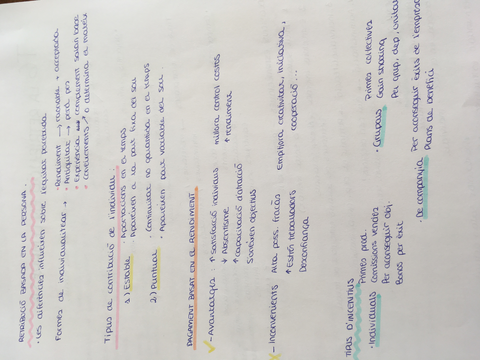 RETRIBUCIÓ BASADA EN LA PERSONA.
· Les diferències influeixen sobre l'equitat percebuda
Formes de individualitzar → · Rendiment → recorda → acceptada
· Antiguitat → però, pes
· Experiència → complement salari base
· Coneixements → o determina el mateix
Tipus de contribució de l'individu.
1) Estable · Aportacions en el temps
Apareixen a la part fixa del sou
2) Puntual · Contribució no garantida en el temps
· Apareixen part variable del sou.
PAGAMENT BASAT EN EL RENDIMENT
- Avantatges: ↑ Satisfacció individus millora control costos
↓ Absentisme ↑ rendiment
↑ capacitació d'atracció
Suneixen objectius
- Inconvenients Alta poss. fracàs Empitjora creativitat, iniciativa,
↑ Estrés treballadors cooperació...
Desconfiança
TIPUS D'INCENTIUS
· Individuals Primes prod. · Grupals Primes col·lectives
Comissions vendes Gain sharing
Per aconseguir obj. Per grup, dep, unitat
Bonos per èxit
· De companyia Per aconseguir èxits de l'empresa
Plans de benefici